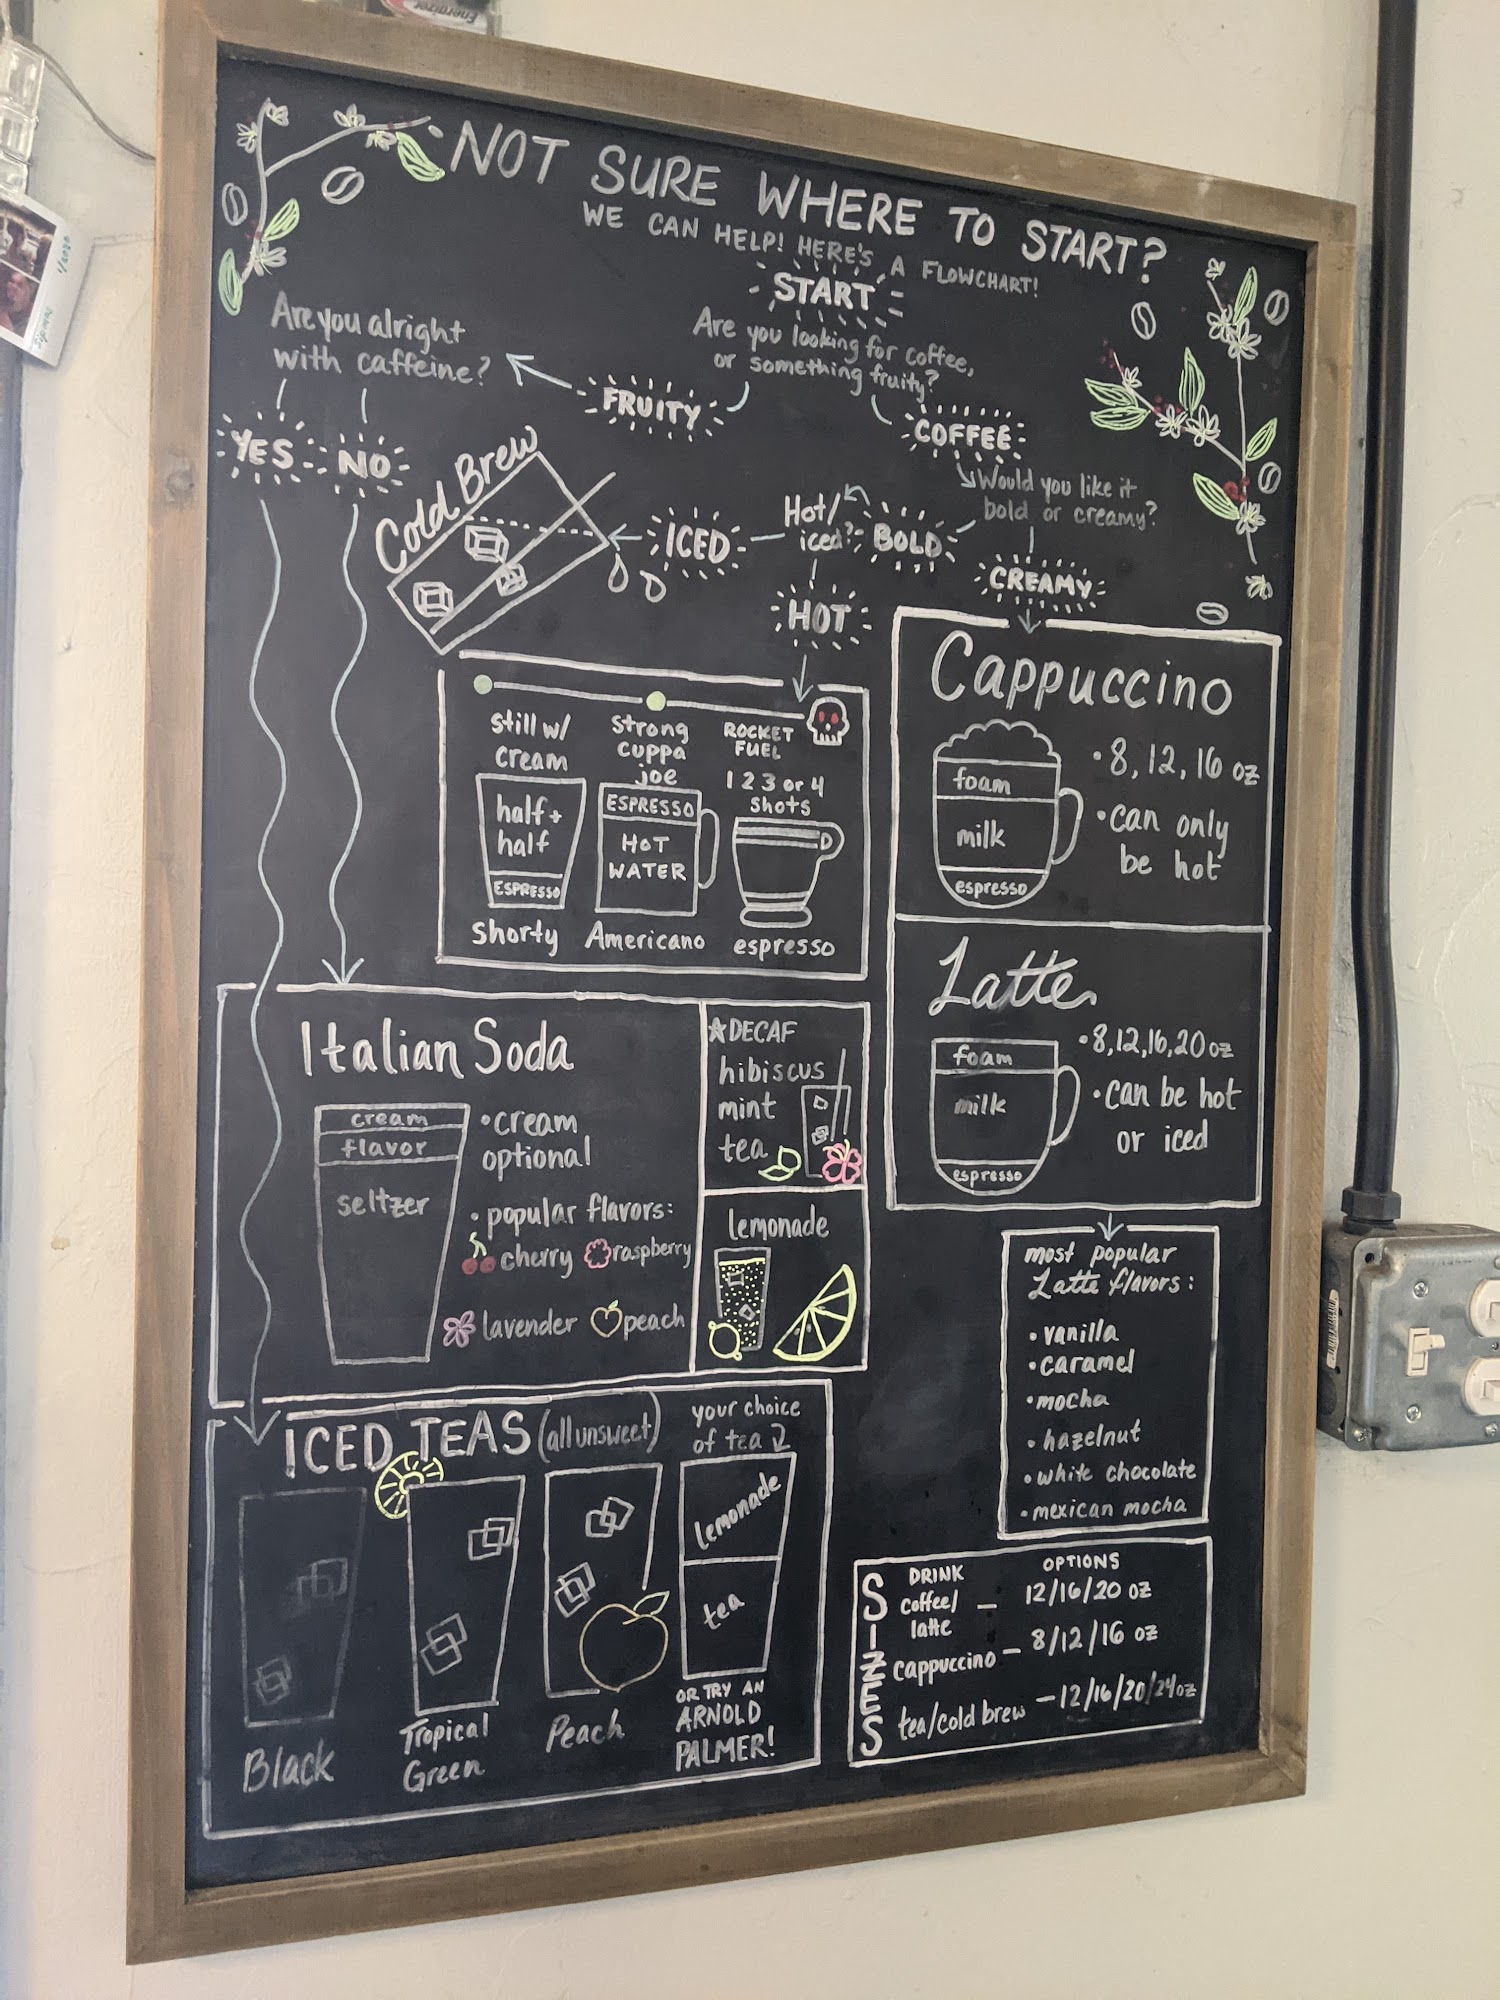 Energizer
NOT SURE WHERE TO START?
WE CAN HELP! HERE'S A FLOWCHART!
START
Are you looking for coffee,
or something fruity?
FRUITY
COFFEE
Are you alright
with caffeine?
YES
NO
Would you like it
bold or creamy?
BOLD
CREAMY
Hot/
iced?
ICED
HOT
Cold Brew
still w/
cream
half +
half
ESPRESSO
Shorty
strong
cuppa
joe
ESPRESSO
HOT
WATER
Americano
ROCKET
FUEL
1 2 3 or 4
shots
espresso
Cappuccino
foam
milk
espresso
• 8, 12, 16 oz
• can only
be hot
Latte
foam
milk
espresso
• 8, 12, 16, 20 oz
• can be hot
or iced
most popular
Latte flavors:
• vanilla
• caramel
• mocha
• hazelnut
• white chocolate
• mexican mocha
Italian Soda
cream
flavor
seltzer
• cream
optional
• popular flavors:
cherry raspberry
lavender peach
DECAF
hibiscus
mint
tea
lemonade
ICED TEAS (all unsweet)
your choice
of tea
lemonade
tea
Black
Tropical
Green
Peach
OR TRY AN
ARNOLD
PALMER!
SIZES
DRINK OPTIONS
coffee/
latte – 12/16/20 oz
cappuccino – 8/12/16 oz
tea/cold brew – 12/16/20/24oz